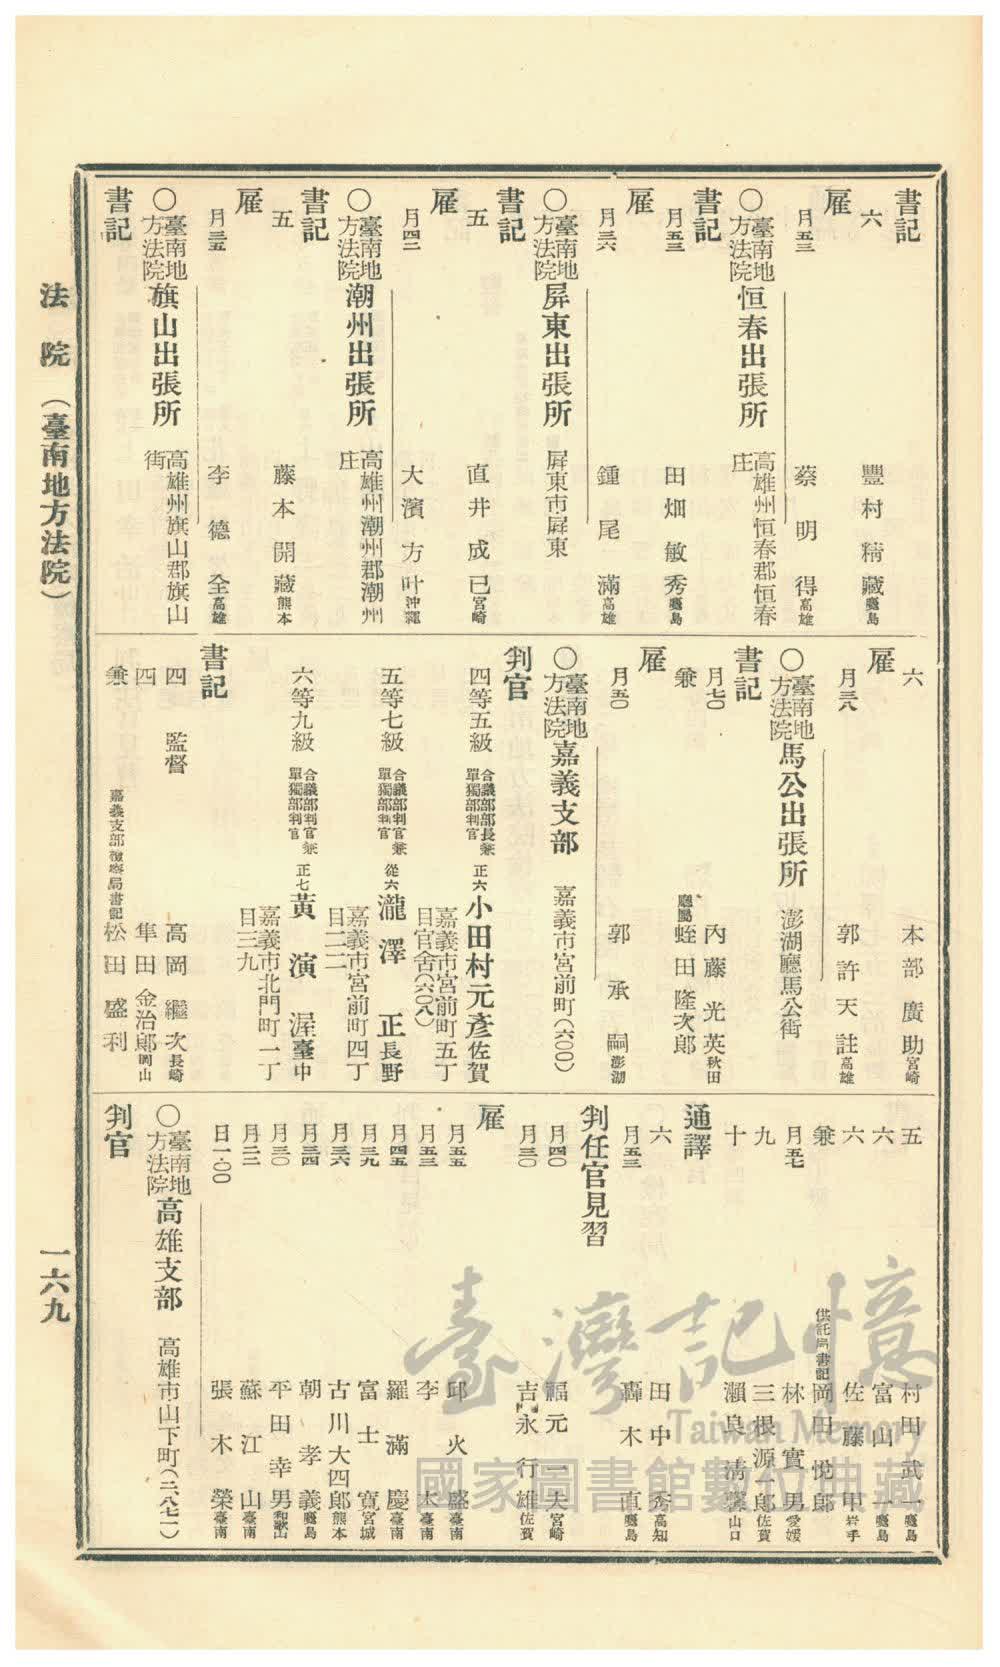 書記
六 豐村精藏 鹿兒島
雇
月五三 蔡明得 高雄
○臺南地方法院恒春出張所 高雄州恒春郡恒春庄
書記
月五三 田畑敏秀 鹿兒島
雇
月三六 鍾尾滿 高雄
○臺南地方法院屏東出張所 屏東市屏東
書記
五 直井成已 宮崎
雇
月四二 大濱方叶 沖繩
○臺南地方法院潮州出張所 高雄州潮州郡潮州庄
書記
五 藤本開藏 熊本
雇
月三五 李德全 高雄
○臺南地方法院旗山出張所 高雄州旗山郡旗山街
書記
六 本部廣助 宮崎
雇
月三八 郭許天註 高雄
○臺南地方法院馬公出張所 澎湖廳馬公街
書記
月七〇 內藤光英 秋田
兼 廳屬 蛭田隆次郎
雇
月五〇 郭承嗣 澎湖
○臺南地方法院嘉義支部 嘉義市宮前町(六〇〇)
判官
四等五級 合議部部長兼單獨部判官 正六 小田村元彥 佐賀
嘉義市宮前町五丁目官舍(六〇八)
五等七級 合議部判官兼單獨部判官 從六 瀧澤正 長野
嘉義市宮前町四丁目二二
六等九級 合議部判官兼單獨部判官 正七 黃演渥 臺中
嘉義市北門町一丁目三九
書記
四 監督 高岡繼次 長崎
四 隼田金治郎 岡山
兼 嘉義支部檢察局書記 松田盛利
五 村田武一 鹿兒島
六 富山一 鹿兒島
六 佐藤甲 岩手
兼 供託局書記 岡田悅郎
月五七 林實男 愛媛
九 三根源一郎 佐賀
十 瀨良清馨 山口
通譯
六 田中秀 高知
月五三 轟木直 鹿兒島
判任官見習
月四〇 福元一夫 宮崎
月三〇 吉永行雄 佐賀
雇
月五五 邱火盛 臺南
月五三 李木 臺南
月四五 羅滿慶 臺南
月三九 富士寬 宮城
月三六 古川大四郎 熊本
月三四 朝孝義 鹿兒島
月三〇 平田幸男 和歌山
月二二 蘇江山 臺南
日一・〇〇 張木榮 臺南
○臺南地方法院高雄支部 高雄市山下町(二八七一)
判官
法院(臺南地方法院) 一六九
臺灣記憶
Taiwan Memory
國家圖書館數位典藏